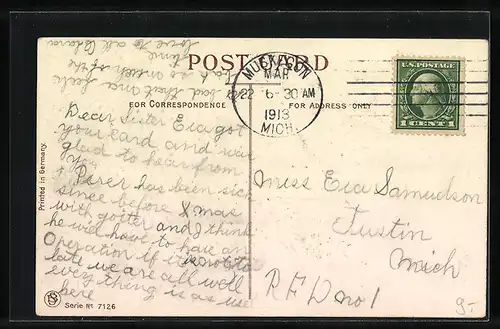 POST CARD
FOR CORRESPONDENCE
FOR ADDRESS ONLY
MUSKEGON
MAR
22 6-30 AM
1913
MICH.
U.S.POSTAGE
1 CENT 1
Dear Sister Eva got
your card and was
glad to hear from
you
Peter has been sick
since before Xmas
with goiter and I think
he will have to have an
Operation if it is not to
late we are all well
every thing is as use
here
bad that one feels
so much of the
time
love to all Clara
Miss Eva Samuelson
Tustin
Mich
R F D no 1
9.-
Printed in Germany.
Serie No 7126